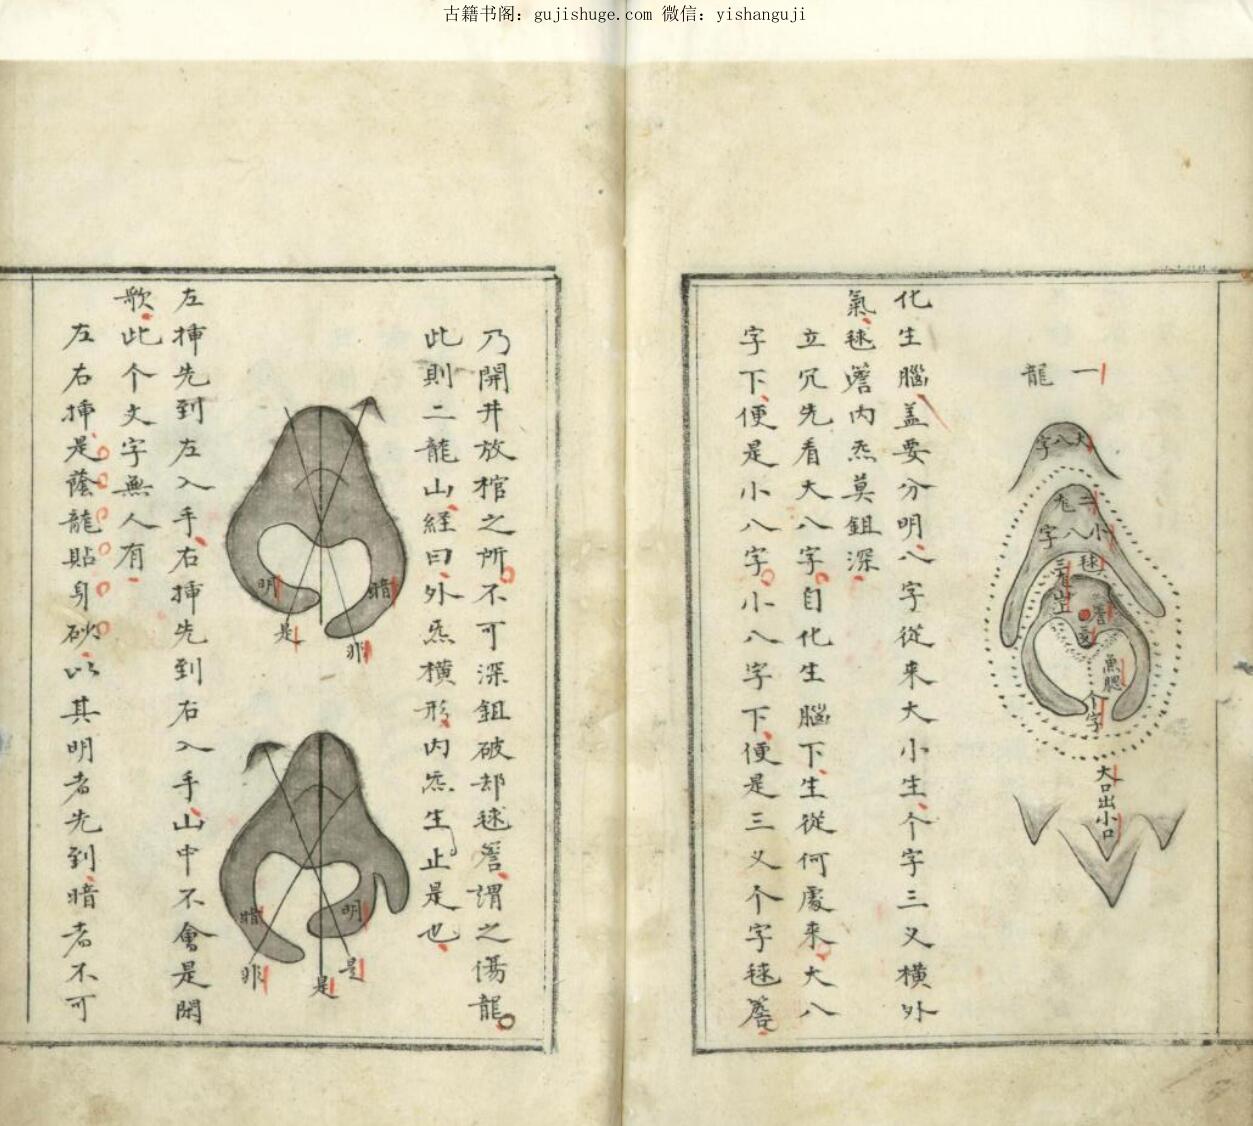 古籍书阁：gujishuge.com 微信：yishanguji
一龍
大八字
二龍
小八字
毬
三龍山
簷
魚腮
个字
大口出小口
化生腦盖要分明八字從來大小生个字三义橫外
氣毬簷内炁莫鉏深
立冗先看大八字自化生腦下生從何處來大八
字下便是小八字小八字下便是三义个字毬簷
乃開井放棺之所不可深鉏破却毬簷謂之傷龍
此則二龍山經曰外炁橫形内炁生止是也
明
暗
是
非
暗
明
非
是
是
左挿先到左入手右挿先到右入手山中不會是閑
歌此个文字無人有
左右挿是蔭龍貼身砂以其明者先到暗者不可